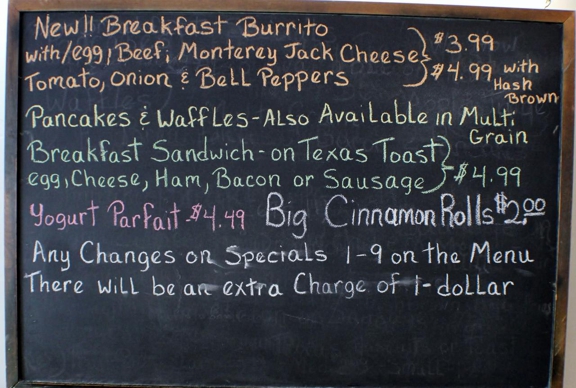 New!! Breakfast Burrito
with/egg, Beef, Monterey Jack Cheese $3.99
Tomato, Onion & Bell Peppers $4.99 with Hash Brown
Pancakes & Waffles-Also Available in Multi Grain
Breakfast Sandwich-on Texas Toast
egg, Cheese, Ham, Bacon or Sausage $4.99
Yogurt Parfait-$4.49 Big Cinnamon Rolls $2.00
Any Changes on Specials 1-9 on the Menu
There will be an extra Charge of 1-dollar